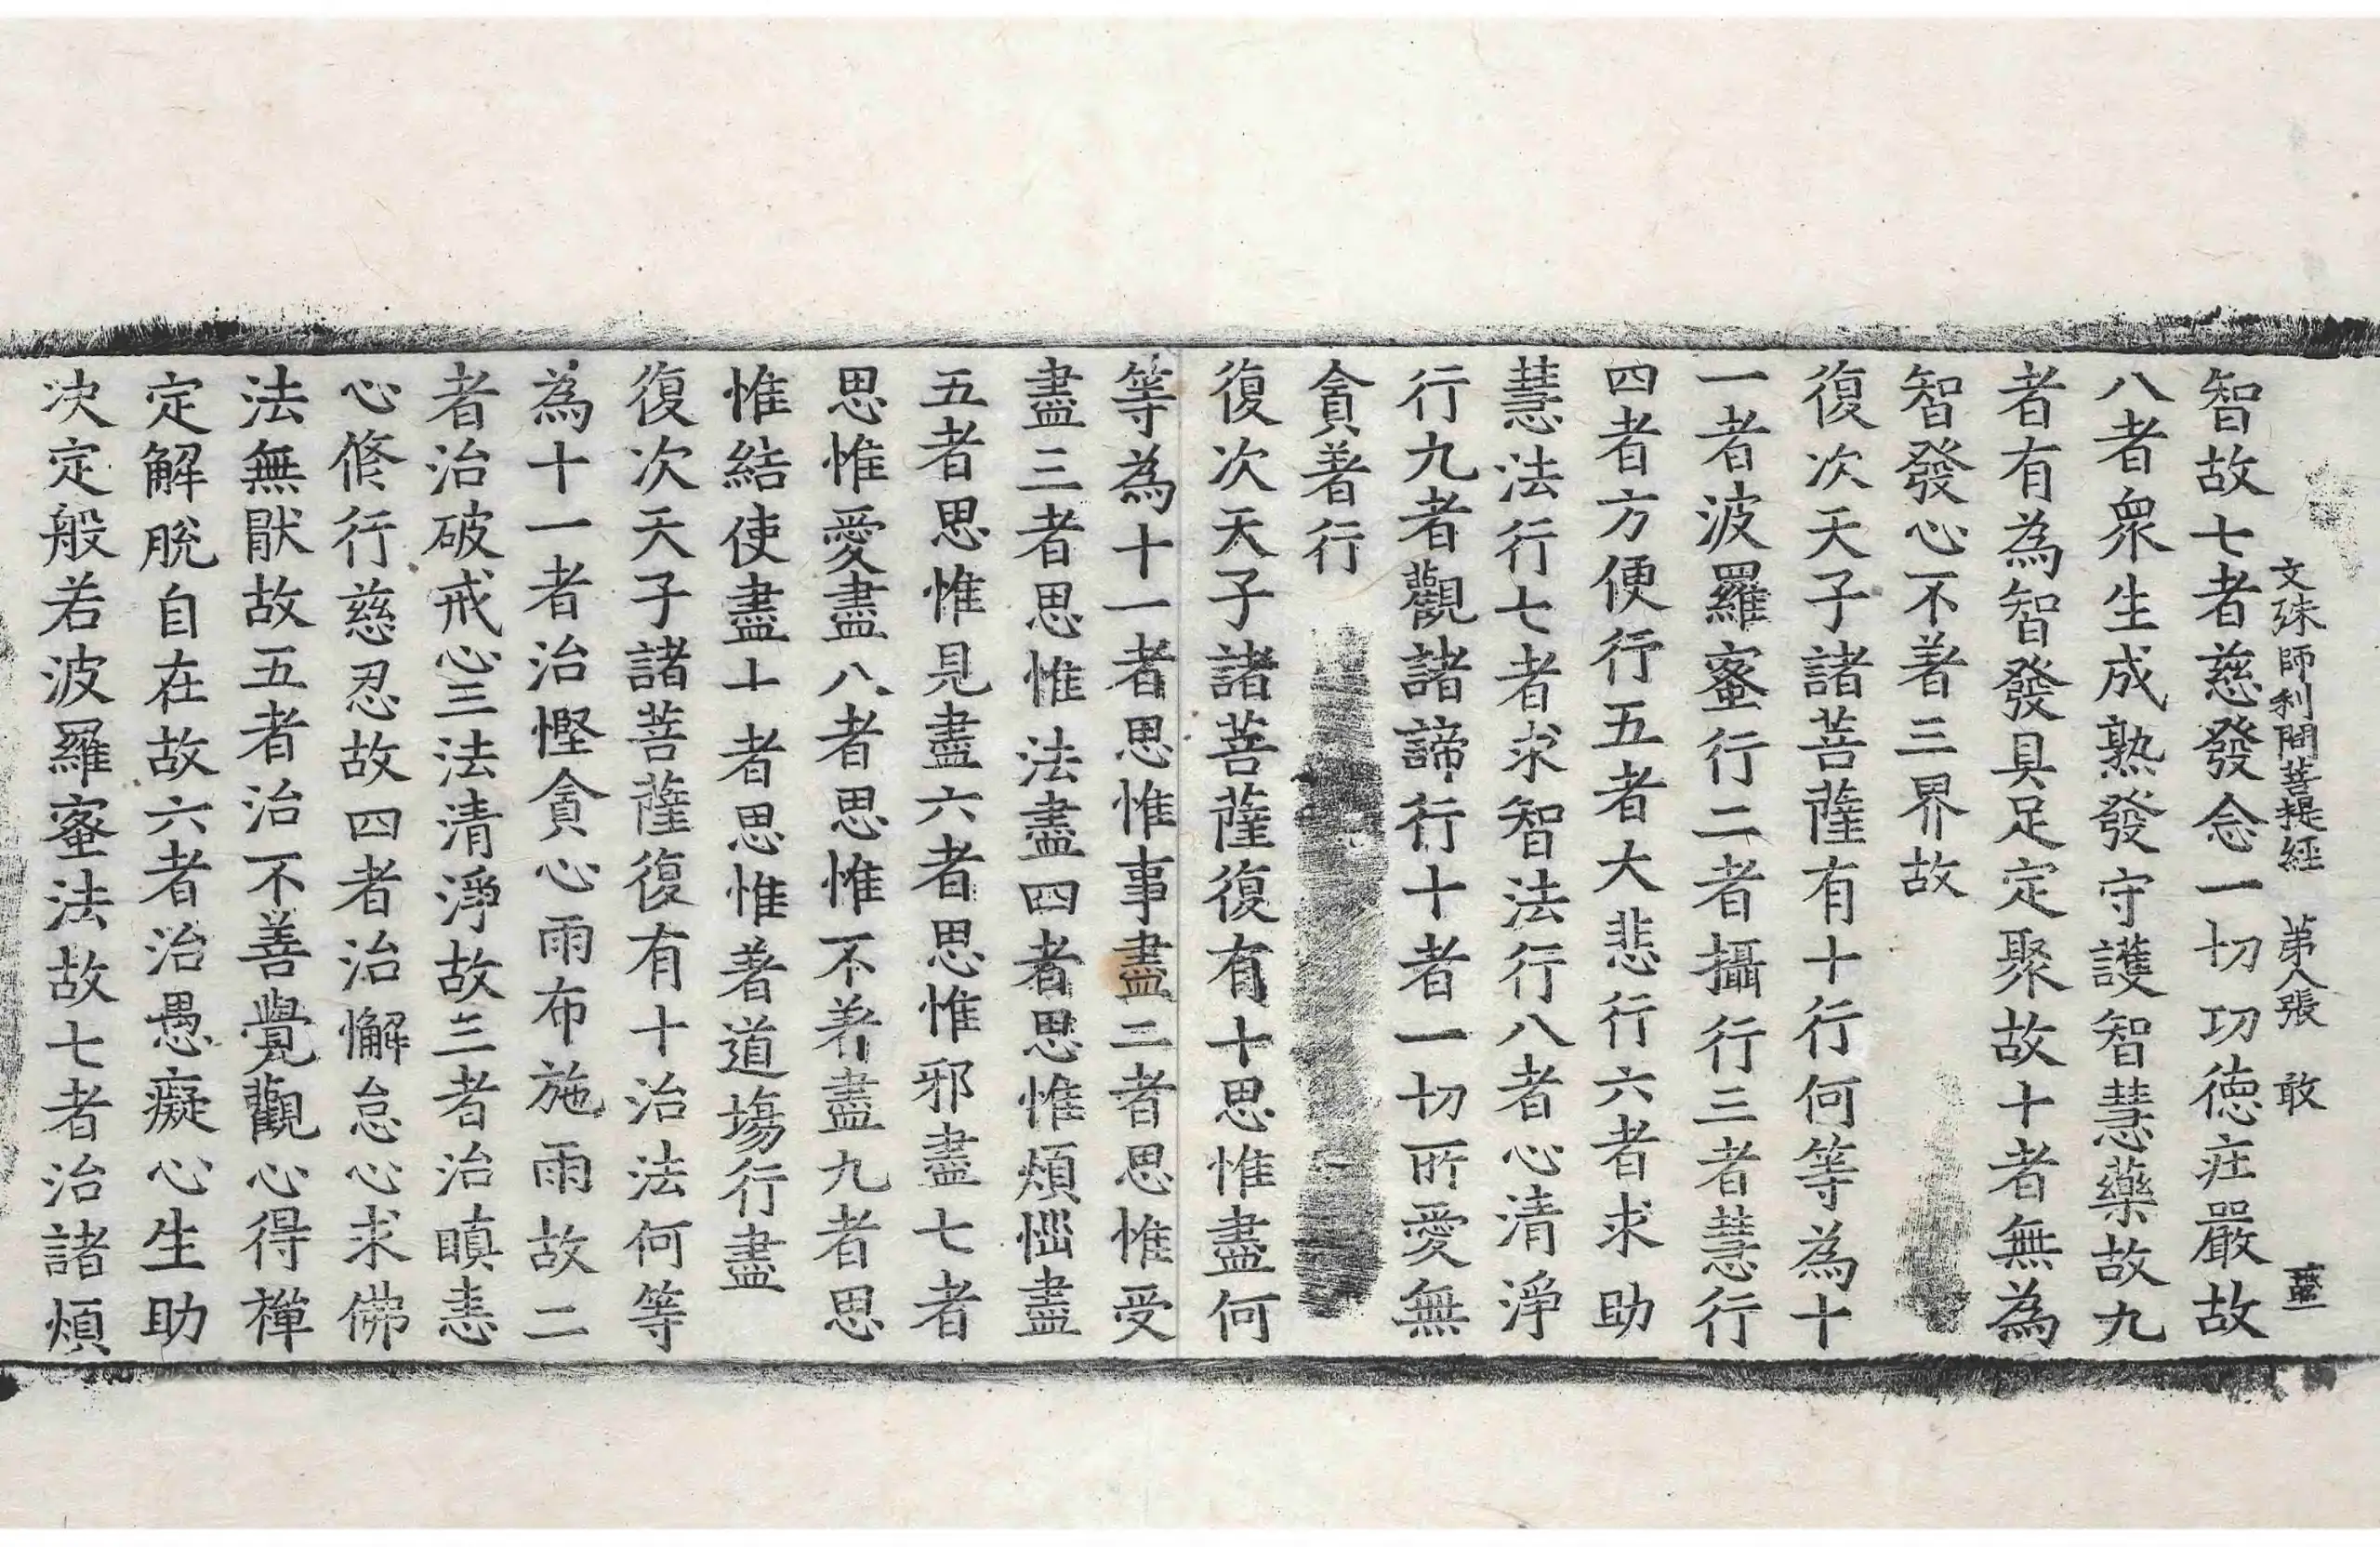 文殊師利問菩提經 苐八張 敢
智故七者慈發念一切功德莊嚴故
八者衆生成熟發守護智慧藥故九
者有為智發具足定聚故十者無為
智發心不著三界故
復次天子諸菩薩有十行何等為十
一者波羅蜜行二者攝行三者慧行
四者方便行五者大悲行六者求助
慧法行七者求智法行八者心清淨
行九者觀諸諦行十者一切所愛無
貪著行
復次天子諸菩薩復有十思惟盡何
等為十一者思惟事盡二者思惟受
盡三者思惟法盡四者思惟煩惱盡
五者思惟見盡六者思惟邪盡七者
思惟愛盡八者思惟不著盡九者思
惟結使盡十者思惟著道場行盡
復次天子諸菩薩復有十治法何等
為十一者治慳貪心雨布施雨故二
者治破戒心三法清淨故三者治瞋恚
心修行慈忍故四者治懈怠心求佛
法無猒故五者治不善覺觀心得禪
定解脫自在故六者治愚癡心生助
决定般若波羅蜜法故七者治諸煩